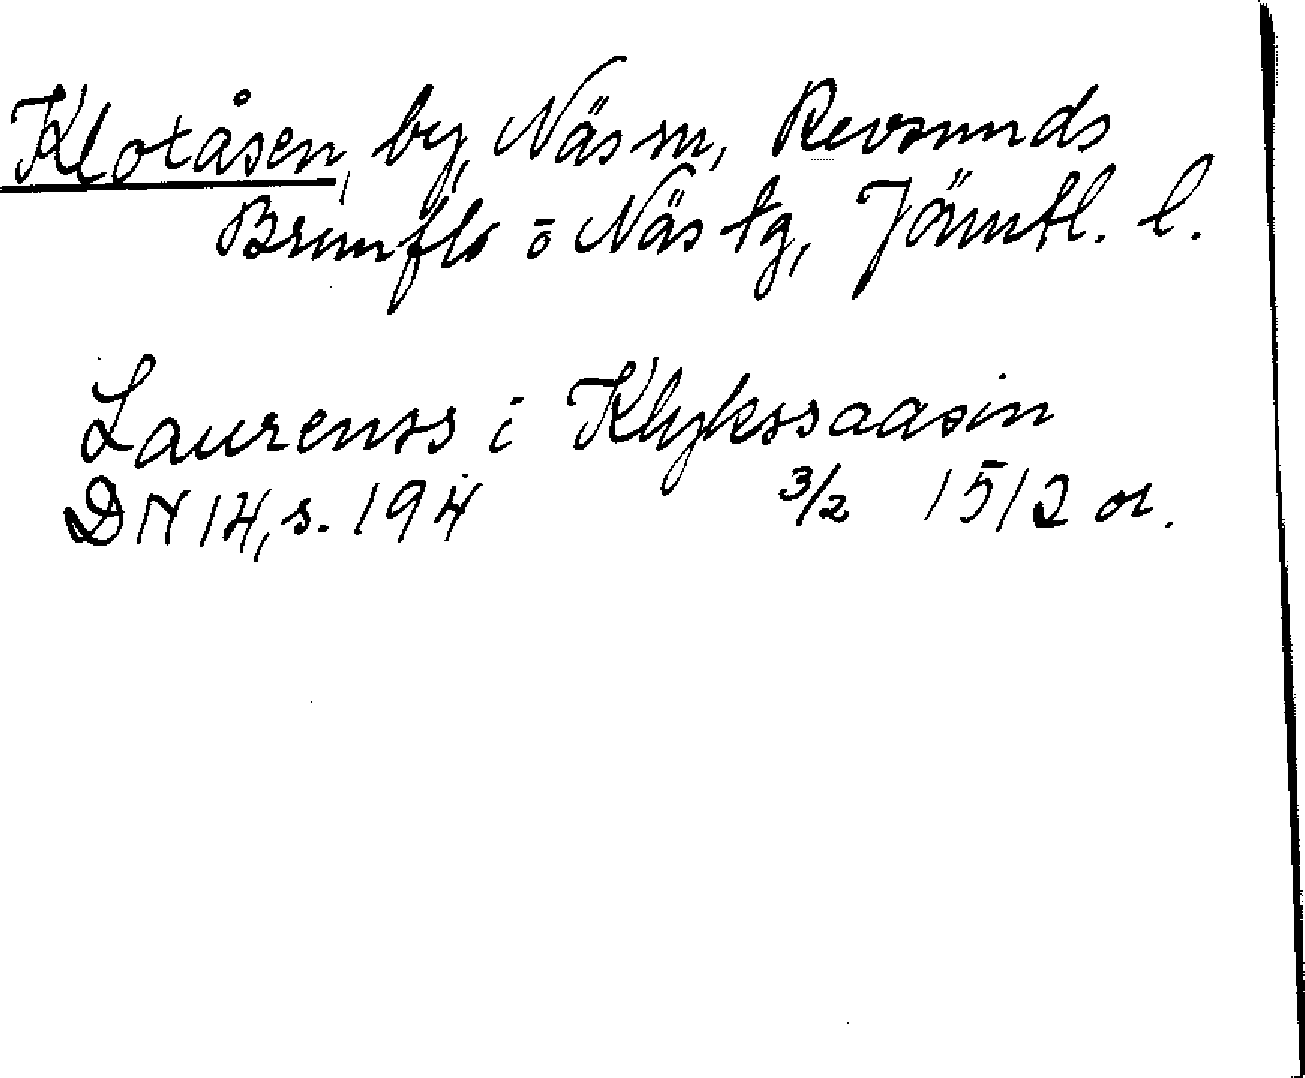 Klotåsen, by, Näs sn, Revsunds
Brunflo o Näs tg, Jämtl. l.
Laurenss i Klykssaasin
DN 14, s. 194 3/2 1512 or.